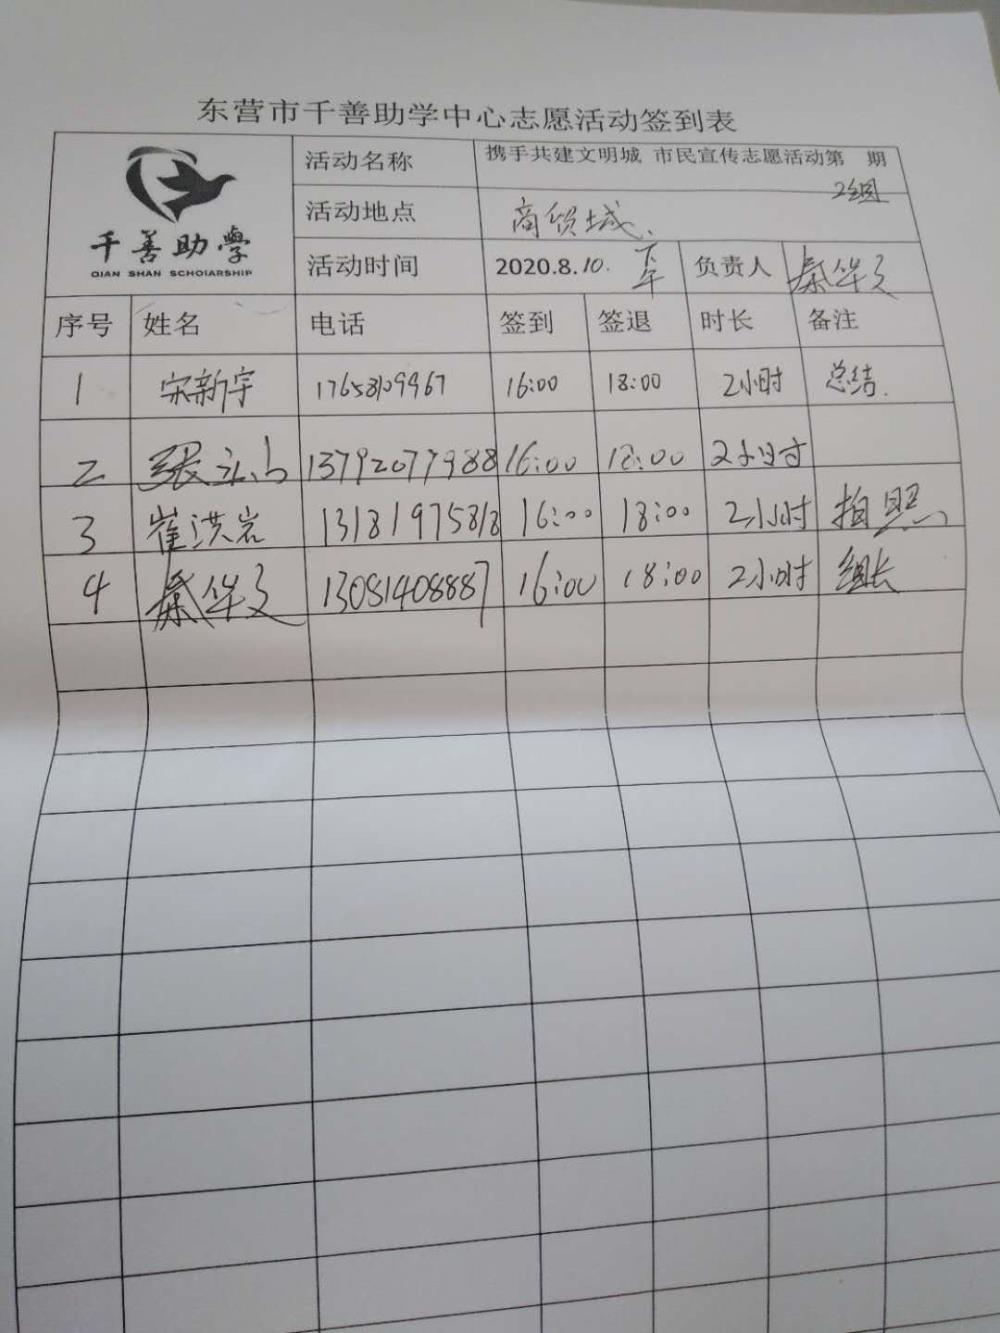 东营市千善助学中心志愿活动签到表
千善助學
QIAN SHAN SCHOLARSHIP
活动名称 携手共建文明城 市民宣传志愿活动第 期
2组
活动地点 商贸城、
活动时间 2020.8.10. 下午 负责人 秦华文
序号 姓名 电话 签到 签退 时长 备注
1 宋新宇 17658109967 16:00 18:00 2小时 总结.
2 张 13792077988 16:00 18:00 2小时
3 崔洪岩 13181975818 16:00 18:00 2小时 拍照
4 秦华文 13081408887 16:00 18:00 2小时 组长